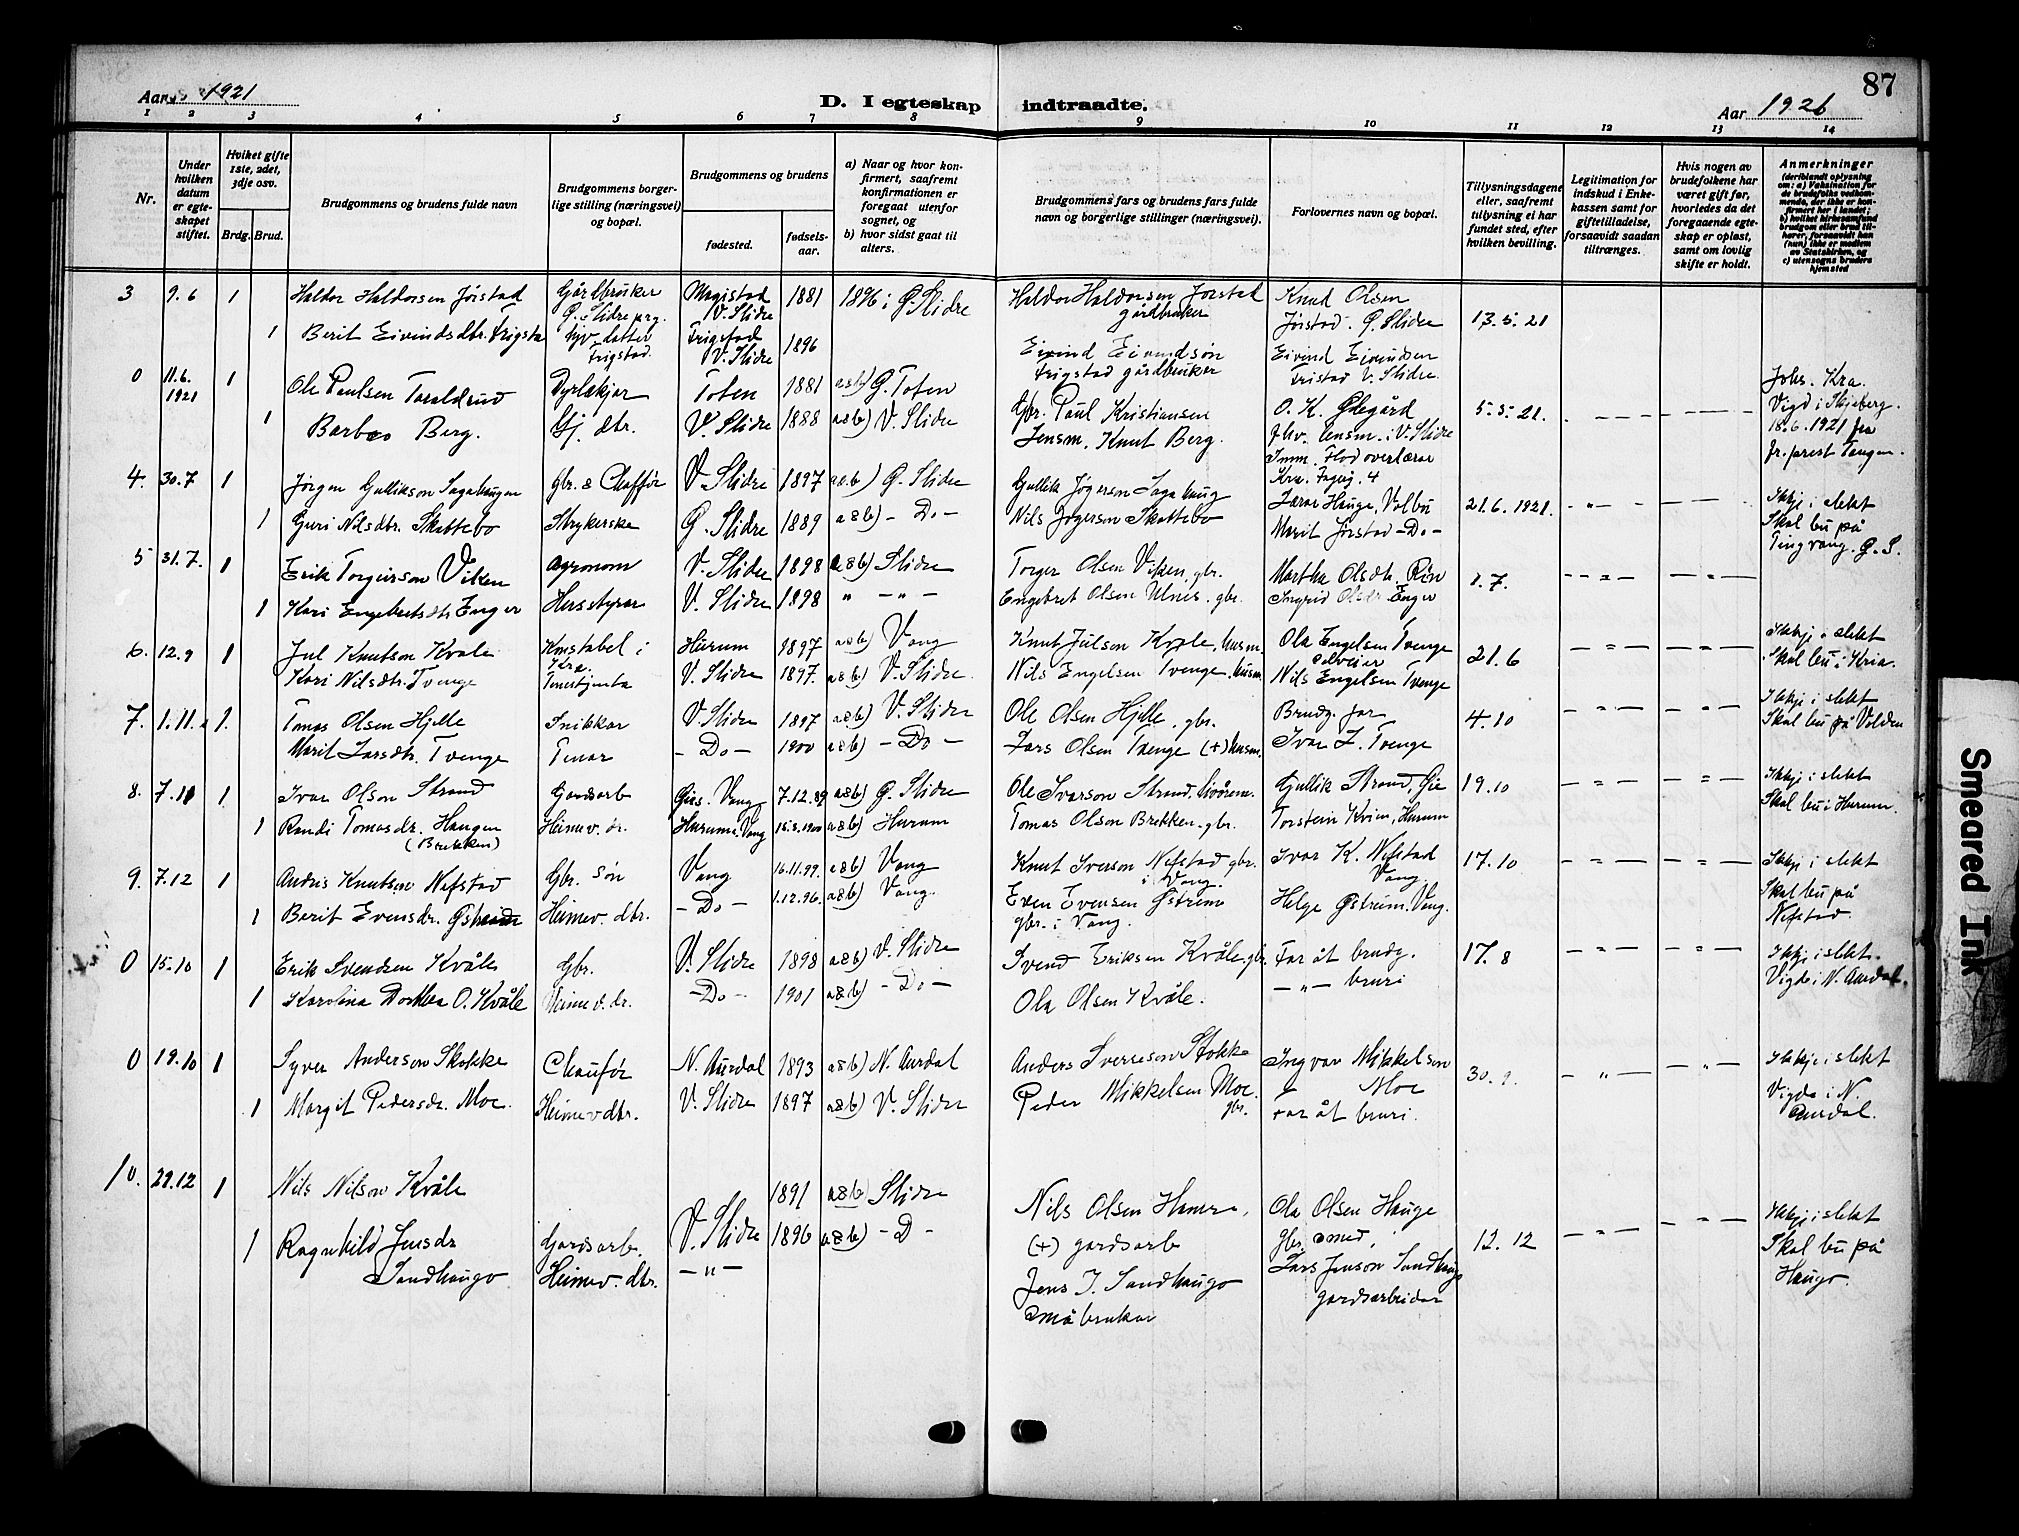 87
Aar 1921
D. I egteskap indtraadte.
Aar 1921
1 2 3 4 5 6 7 8 9 10 11 12 13 14
Nr.
Under hvilken datum er egteskapet stiftet.
Hvilket gifte 1ste, 2det, 3dje osv.
Brdg. Brud.
Brudgommens og brudens fulde navn
Brudgommens borgerlige stilling (næringsvei) og bopæl.
Brudgommens og brudens
fødested.
fødselsaar.
a) Naar og hvor konfirmert, saafremt konfirmationen er foregaat utenfor sognet, og
b) hvor sidst gaat til alters.
Brudgommens fars og brudens fars fulde navn og borgerlige stillinger (næringsvei).
Forlovernes navn og bopæl.
Tillysningsdagene eller, saafremt tillysning ei har fundet sted, efter hvilken bevilling.
Legitimation for indskud i Enkekassen samt for giftetilladelse, forsaavidt saadan tiltrænges.
Hvis nogen av brudefolkene har været gift før, hvorledes da det foregaaende egteskap er opløst, samt om lovlig skifte er holdt.
Anmerkninger
(deriblandt oplysning om: a) Vaksination for de brudefolks vedkommende, der ikke er konfirmert her i landet; b) hvilket kirkesamfund brudgom eller brud tilhører, forsaavidt han (hun) ikke er medlem av Statskirken, og c) utensogns bruders hjemsted
3 9.6 1 Haldor Haldorsen Jørstad Gårdbruker Ø. Slidre prg. Magistad V. Slidre 1881 1896 i Ø. Slidre Haldor Haldorsen Jørstad gårdbruker Knud Olsen Jørstad. Ø. Slidre 13.5.21
1 Berit Eivindsdtr. Frigstad datter Frigstad. Frigstad V. Slidre 1896 Eivind Eivindsøn Frigstad gårdbruker Eivind Eivindsen Fristad V. Slidre.
0 11.6. 1921 1 Ole Paulsen Taraldrud Dyrlækjer Toten 1881 a&b) Ø. Toten Gbr. Paul Kristiansen O. K. Ødegård fhv. lensm. i V. Slidre 5.5.21. Johs. Kra. Vigd i Skjeberg. 18.6.1921 fra fr. prest Tangen.
1 Barbro Berg. Gj. dtr. V. Slidre 1888 a&b) V. Slidre Lensm. Knut Berg. overlærar Kra.
4. 30.7 1 Jørgen Gulliksøn Sagahaugen Gbr. & Chaffør V. Slidre 1897 a&b) Ø. Slidre Gullik Jøgerson Sagahaug Lærar Hauge, Volbu 21.6.1921. Ikkje i slekt Skal bu på Tingvang. Ø. S.
1 Guri Nilsdtr. Skattebo Strykerske Ø. Slidre 1889 a&b) - Do - Nils Jøgerson Skattebo Marit Jørstad - Do -
5 31.7. 1 Erik Torgeirson Viken Agronom V. Slidre 1898 a&b) Slidre Torger Olsen Viken, gbr. Martha Olsdtr. Røn 1.7.
1 Kari Engebretsdtr Enger Husstyrar V. Slidre 1898 " - " - Engebret Olsen Ulnes. gbr. Ingrid Olsdr Enger
6. 12.9 1 Jul Knutson Kvale Konstabel i Kra. Hurum 1897 a&b) Vang Knut Julson Kvale, husm. Ola Engelsen Tvenge 21.6 Ikkje i slekt Skal bu i Kria.
Kari Nilsdtr. Tvenge Tenestjenta V. Slidre 1897. a&b) V. Slidre. Nils Engelsen Tvenge, husm Nils Engelsen Tvenge
7. 1.11. 1. Tomas Olsen Hjelle Snikkar V. Slidre 1897 a&b) V. Slidre Ole Olsen Hjelle, gbr. Brudg. far 4.10 Ikkje i slekt Skal bu på Volden
Marit Larsdtr. Tvenge Tenar - Do - 1900 a&b) - Do - Lars Olsen Tvenge (+) husm. Ivar L. Tvenge
8. 7.11 1 Ivar Olson Strand Gardsarb Vang 7.12.89 a&b) Ø. Slidre Ole Ivarson Strand, Gullik Strand, 19.10 Ikkje i slekt Skal bu i Hurum.
1 Randi Tomasdr. Haugen (Brekken) Heimev. dr. Hurum, Vang 15.5.1900 a&b) Hurum Tomas Olson Brekken. gbr. Torstein Kvien, Hurum
9. 7.12 1 Andris Knutson Nefstad Gbr. søn Vang 16.11.99. a&b) Vang Knut Iverson Nefstad gbr. i Vang. Ivar K. Nefstad Vang. 17.10 Ikkje i slekt Skal bu på Nefstad.
1 Berit Evensdr. Østrem Heimev. dtr. - Do - 1.12.96. a&b) Vang. Even Evensen Østrem gbr. i Vang. Helge Østrem. Vang.
0 15.10 1 Erik Svendsen Kvåle Gbr. V. Slidre 1898 a&b) V. Slidre Svend Eriksen Kvåle. gbr. Far åt brudg. 17.8 Ikkje i slekt. Vigde i N. Aurdal.
1 Karolina Dorthea O. Kvåle Heimev. dr. - Do - 1901 a&b) - Do - Ola Olsen Kvåle. - " - bruri
0 19.10 1 Syver Anderson Stokke Chaufør N. Aurdal 1893 a&b) N. Aurdal Anders Iverson Stokke Ingvar Mikkelson Moe 30.9. Ikkje i slekt Vigde i N. Aurdal.
1 Margit Pedersdr. Moe. Heimev dtr. V. Slidre 1897 a&b) V. Slidre Peder Mikkelsen Moe. gbr. Far åt bruri.
10. 29.12 1 Nils Nilson Kvåle Gardsarb. V. Slidre 1891 a&b) Slidre Nils Olsen Hamre, (+) gardsarb Ola Olsen Hauge gbr. smed, 12.12 Ikkje i slekt Skal bu på Haugo.
1 Ragnhild Jensdr Sandhaugo Heimev. dtr. - " - 1896 a&b) - D - Jens J. Sandhaugo småbrukar Lars Jenson Sandhaugo gardsarbeidar
Smeared Ink